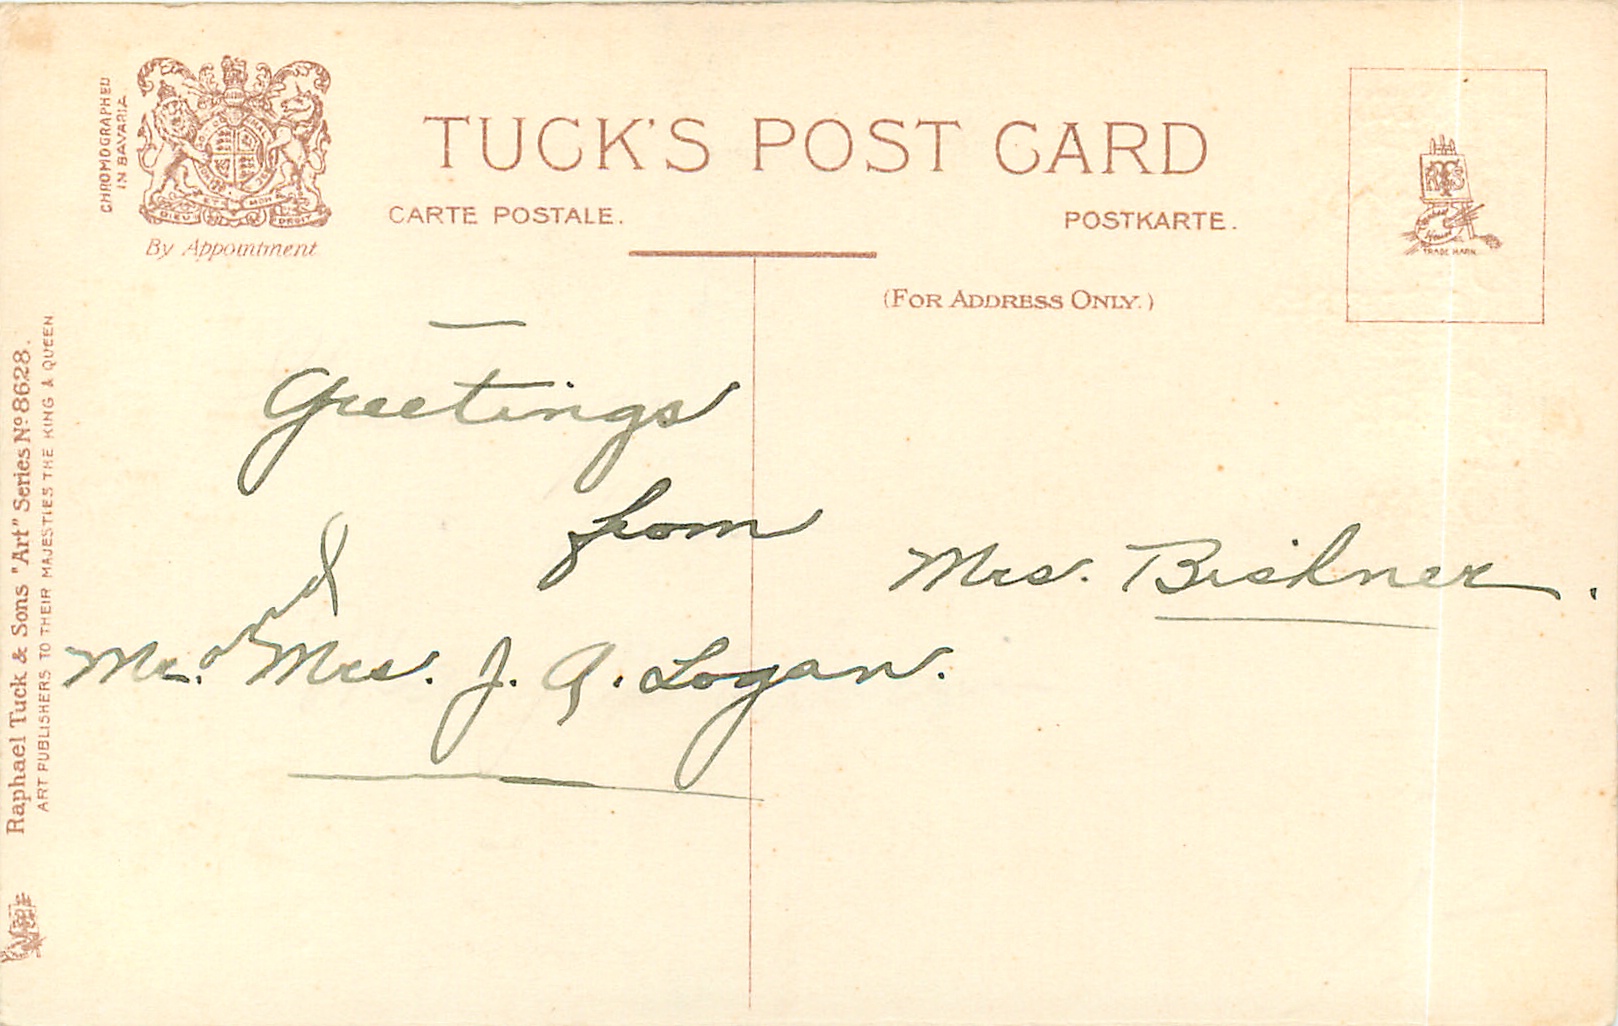 CHROMOGRAPHED
IN BAVARIA
DIEU ET MON DROIT
By Appointment
TUCK'S POST CARD
CARTE POSTALE.
POSTKARTE.
(FOR ADDRESS ONLY.)
TRADE MARK
Raphael Tuck & Sons "Art" Series Nº 8628.
ART PUBLISHERS TO THEIR MAJESTIES THE KING & QUEEN
Greetings
from
Mr. and Mrs. J. A. Logan.
Mrs. Biskner.